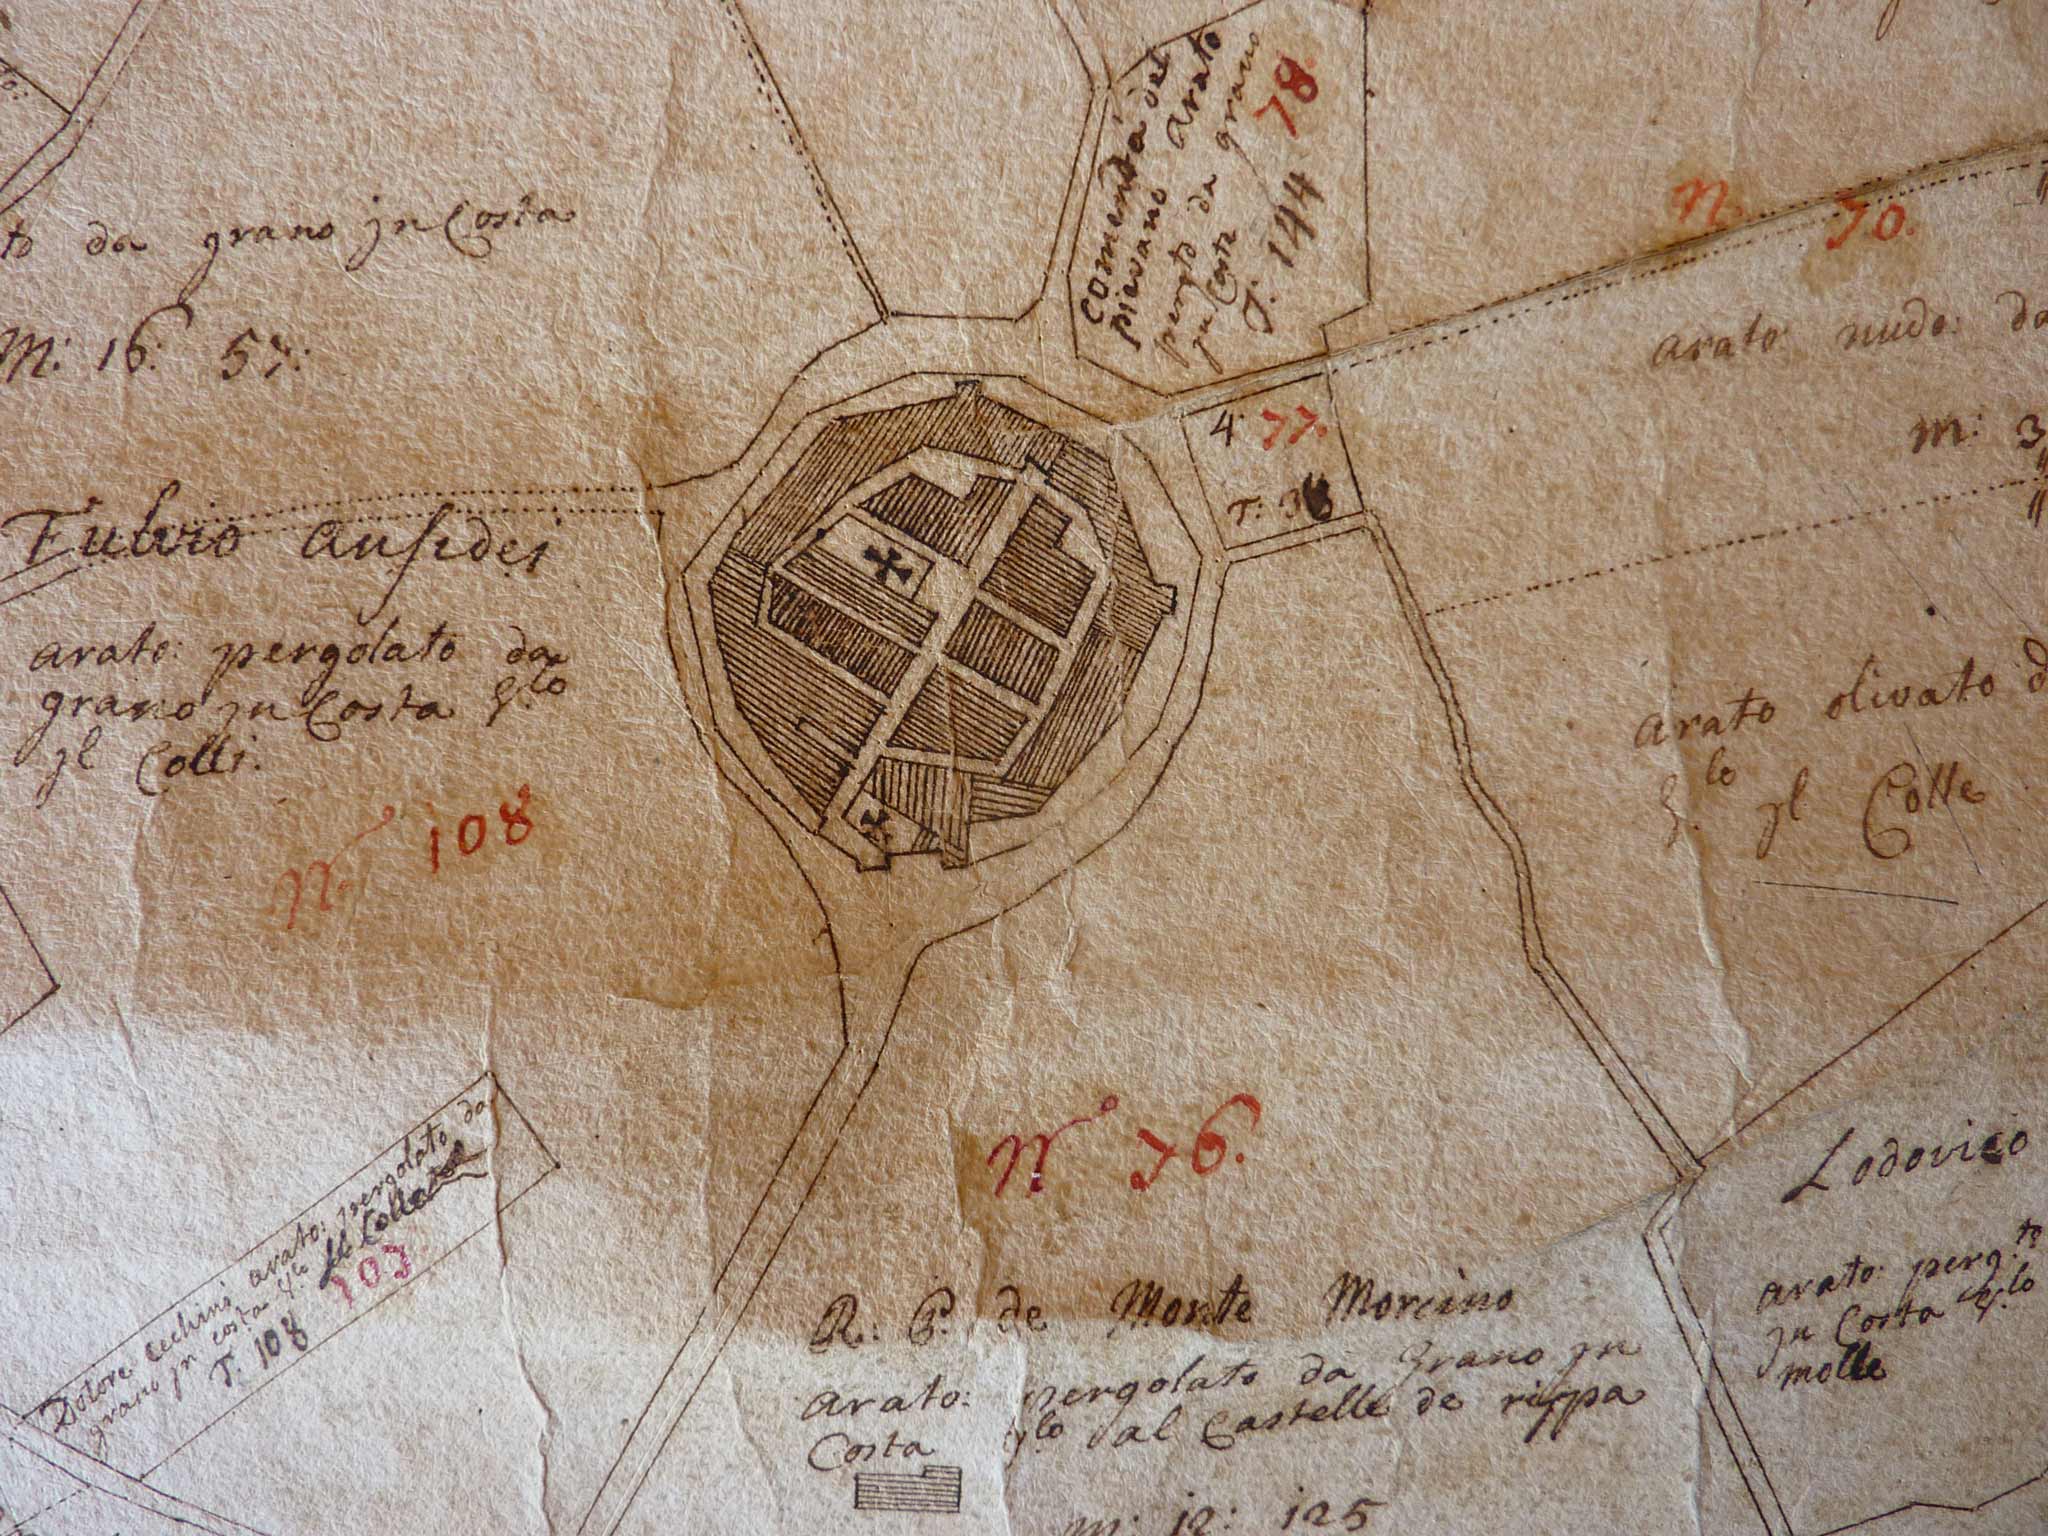 Comenda del
pievano arato
pergto da grano
jn Costa
T: 144
78.
to da grano jn Costa
M: 16: 57:
n. 70.
arato nudo: da
m: 3
4. 77.
T: 36
Fulvio ansidei
arato: pergolato da
grano jn Costa
jl Colli.
No 108
arato olivato d
jl Colle
No 76.
Dotore Cechini arato: pergolato da
grano jn costa
T: 108
107
R: P. de Monte Morcino
arato: pergolato da grano jn
Costa al Castelle de rippa
m: 12: 125
Lodovico
arato: perg.to
jn Costa
molle